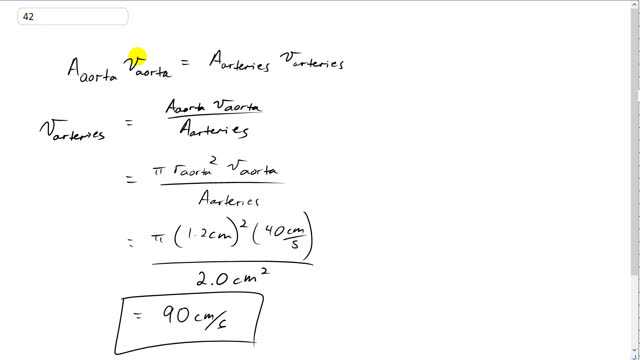 42
A_aorta v_aorta = A_arteries v_arteries
v_arteries = A_aorta v_aorta / A_arteries
= π r_aorta² v_aorta / A_arteries
= π (1.2cm)² (40 cm/s) / 2.0 cm²
= 90 cm/s